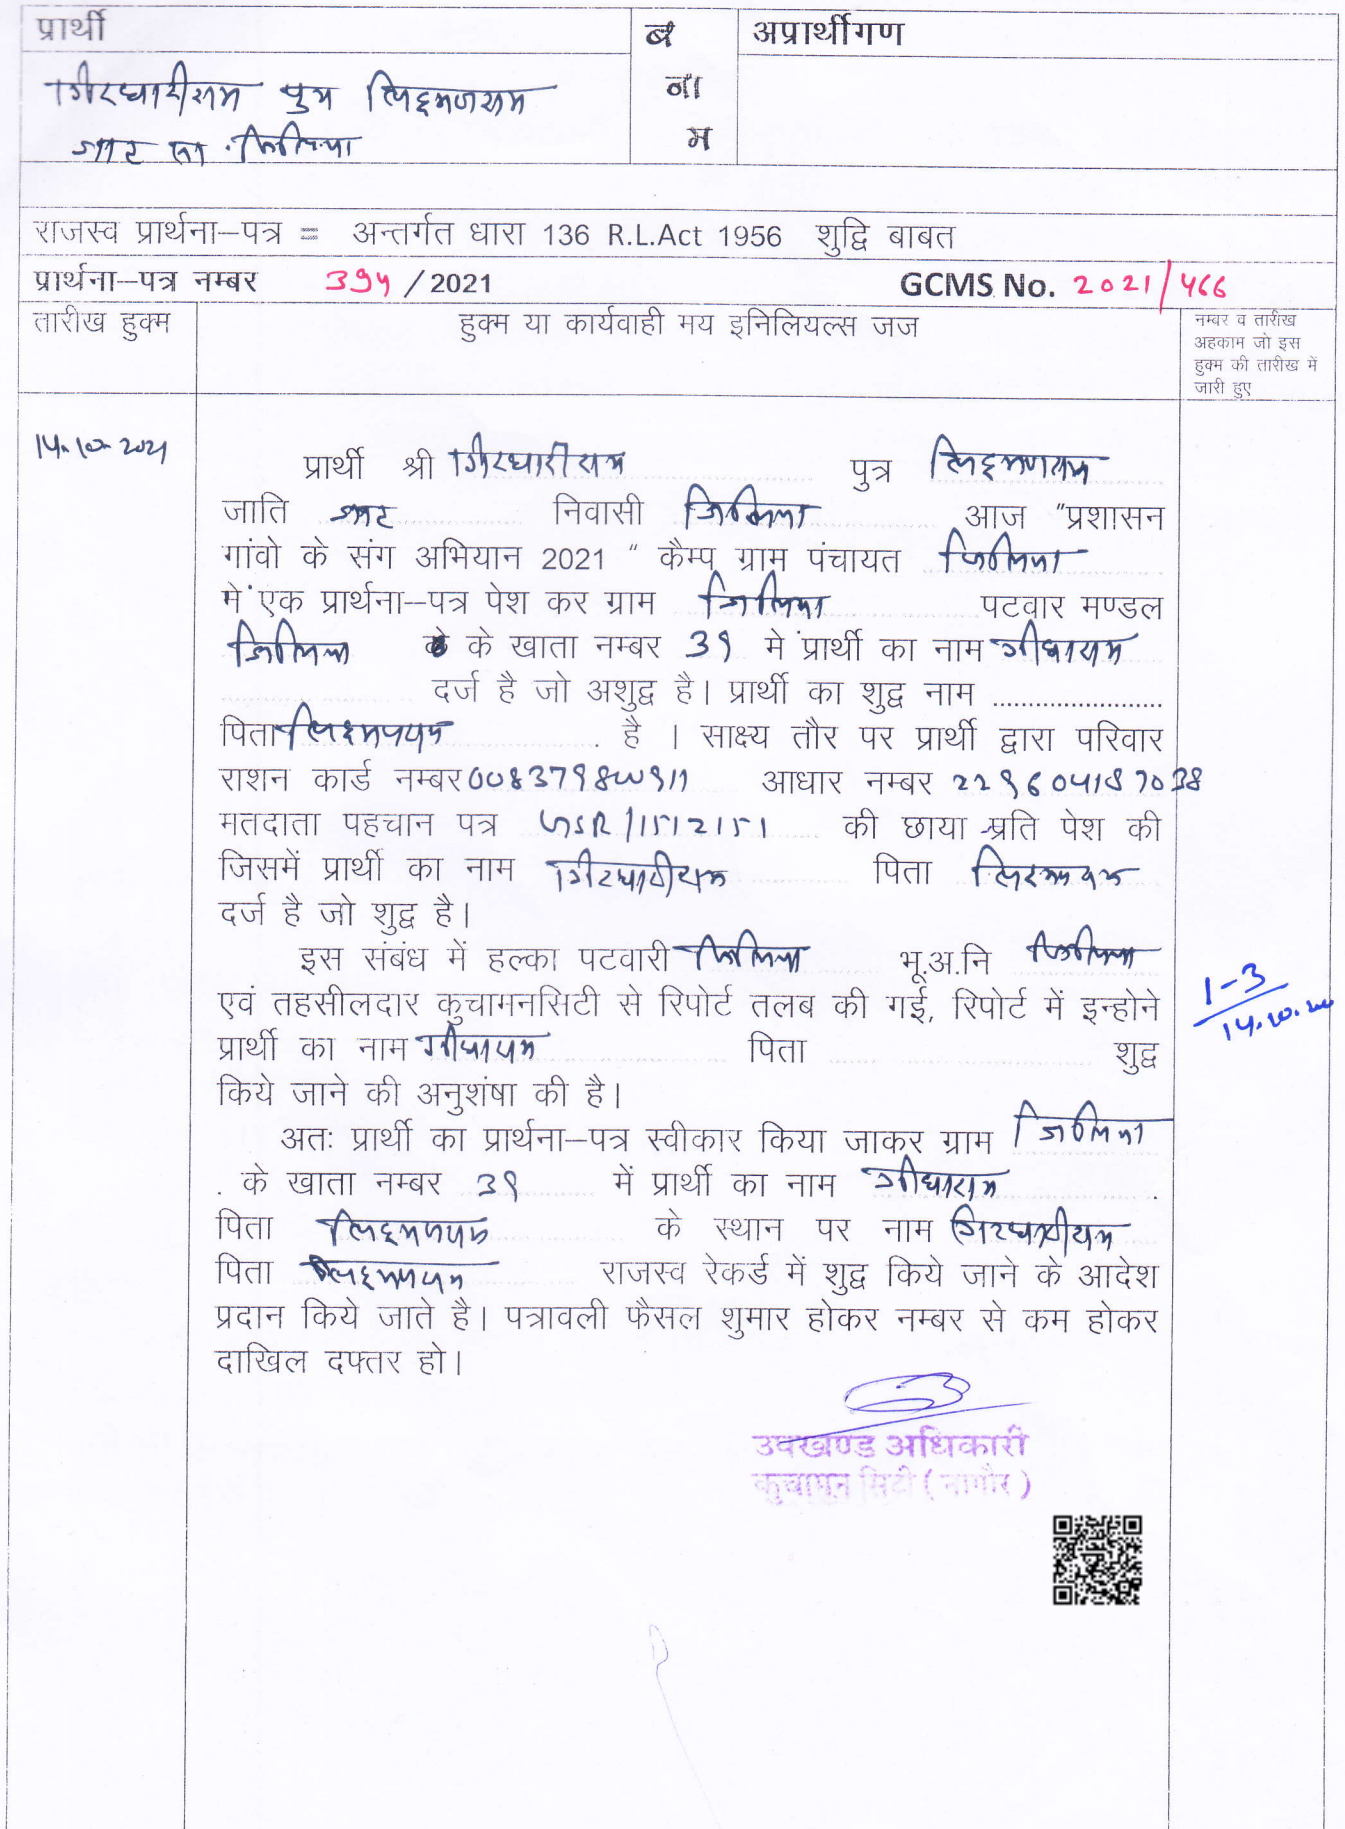 प्रार्थी
ब
ना
म
अप्रार्थीगण
गिरधारीराम पुत्र लिछमणराम
जाट सा. जिलिया
राजस्व प्रार्थना–पत्र = अन्तर्गत धारा 136 R.L.Act 1956 शुद्वि बाबत
प्रार्थना–पत्र नम्बर 394 / 2021 GCMS No. 2021/466
तारीख हुक्म
हुक्म या कार्यवाही मय इनिलियल्स जज
नम्बर व तारीख
अहकाम जो इस
हुक्म की तारीख में
जारी हुए
14.10.2021
प्रार्थी श्री गिरधारीराम पुत्र लिछमणराम
जाति जाट निवासी जिलिया आज "प्रशासन
गांवो के संग अभियान 2021 " कैम्प ग्राम पंचायत जिलिया
में एक प्रार्थना–पत्र पेश कर ग्राम जिलिया पटवार मण्डल
जिलिया के खाता नम्बर 39 में प्रार्थी का नाम गीधाराम
दर्ज है जो अशुद्व है। प्रार्थी का शुद्व नाम ........................
पिता लिछमणराम है । साक्ष्य तौर पर प्रार्थी द्वारा परिवार
राशन कार्ड नम्बर आधार नम्बर
मतदाता पहचान पत्र की छाया प्रति पेश की
जिसमें प्रार्थी का नाम गिरधारीराम पिता लिछमणराम
दर्ज है जो शुद्व है।
इस संबंध में हल्का पटवारी जिलिया भू.अ.नि जिलिया
एवं तहसीलदार कुचामनसिटी से रिपोर्ट तलब की गई, रिपोर्ट में इन्होने
प्रार्थी का नाम गीधाराम पिता शुद्व
किये जाने की अनुशंषा की है।
1-3
14.10.
अतः प्रार्थी का प्रार्थना–पत्र स्वीकार किया जाकर ग्राम जिलिया
. के खाता नम्बर 39 में प्रार्थी का नाम गीधाराम
पिता लिछमणराम के स्थान पर नाम गिरधारीराम
पिता लिछमणराम राजस्व रेकर्ड में शुद्व किये जाने के आदेश
प्रदान किये जाते है। पत्रावली फैसल शुमार होकर नम्बर से कम होकर
दाखिल दफ्तर हो।
उपखण्ड अधिकारी
कुचामन सिटी ( नागौर )